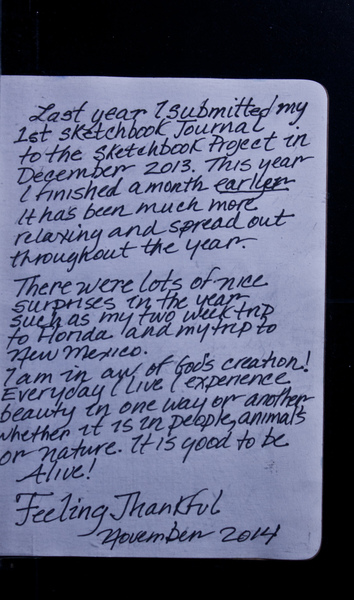 Last year I submitted my
1st Sketchbook Journal
to the Sketchbook Project in
December 2013. This year
I finished a month earlier
It has been much more
relaxing and spread out
throughout the year.
There were lots of nice
surprises in the year
such as my two week trip
to Florida and my trip to
New Mexico.
I am in aw of God's creation!
Everyday I live I experience
beauty in one way or another
whether it is in people, animals
or nature. It is good to be
Alive!
Feeling Thankful
November 2014